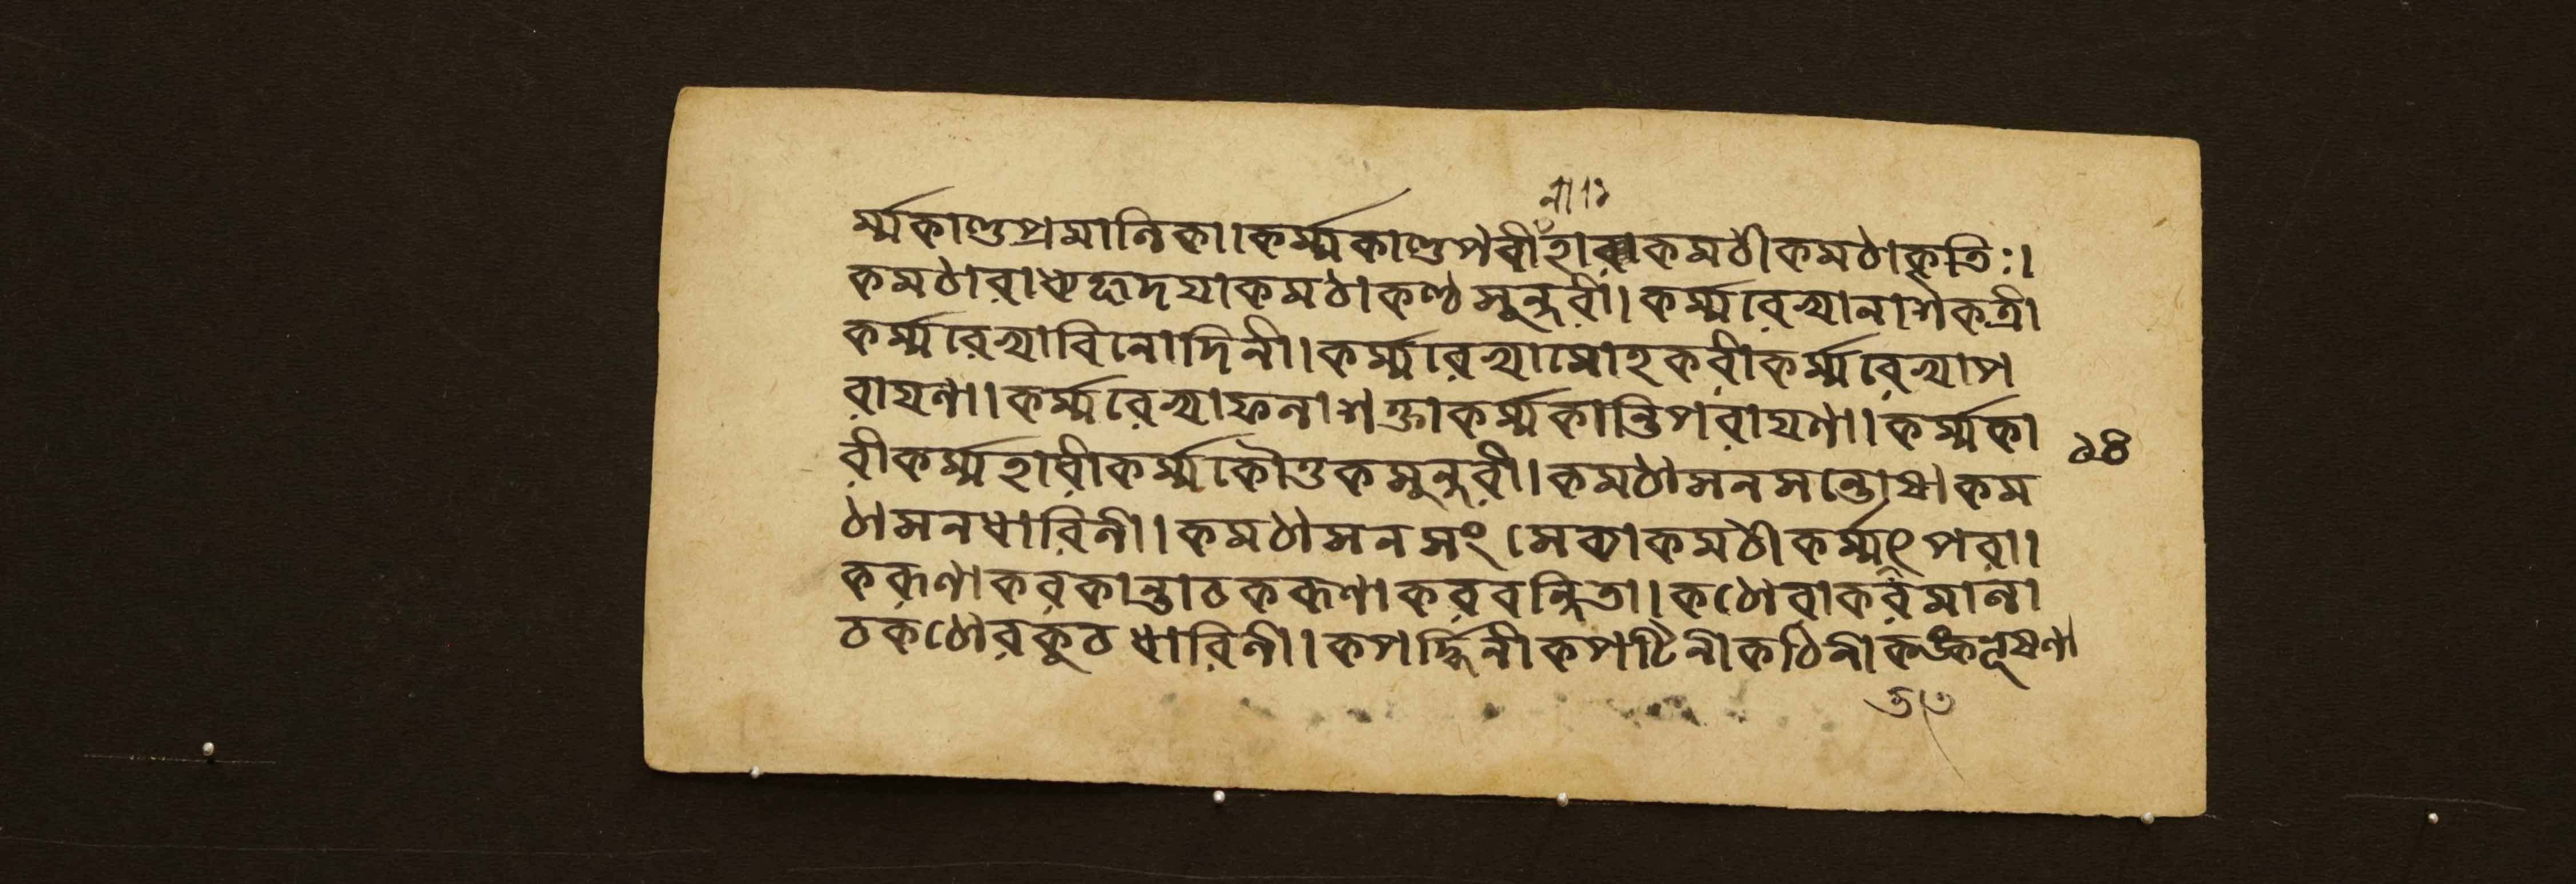 নী।১
র্ম্মকাণ্ডপ্রমানিকা। কর্ম্মকাণ্ডপৰীহাৰা কমঠী কমঠাকৃতিঃ।
কমঠাৰাধ্যহৃদয়া কমঠাকণ্ঠসুন্দৰী। কর্ম্মৰেখানাশকর্ত্রী
কর্ম্মৰেখাবিনোদিনী। কর্ম্মৰেখামোহকৰী কর্ম্মৰেখাপ
ৰায়ণা। কর্ম্মৰেখা কর্ম্মকান্তিপৰায়ণা। কর্ম্মকা
ৰী কর্ম্মহাৰী কর্ম্মকৌতুকসুন্দৰী। কমঠাসনসন্তোষা কম
১৪
ঠাসনধাৰিনী। কমঠাসনসংসেব্যা কমঠী কর্ম্মৎপৰা।
ককণাকৰকান্তা চ ককণাকৰবন্দিতা। কঠোৰা কৰমালা
চ কঠোৰকুচধাৰিনী। কপর্দ্দিনী কপটিনী কঠিনী কঙ্কভূষণা